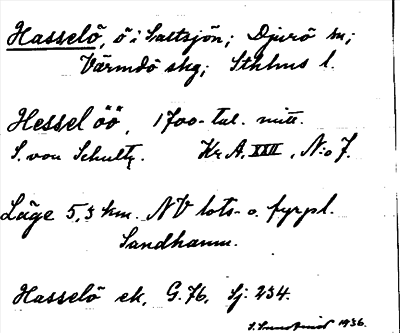 Hasselö, ö i Saltsjön; Djurö sn;
Värmdö skg; Sthlms l.
Hessel öö, 1700-tal. mitt.
S. von Schultz. Kr A. XXII, N:o 7.
Läge 5,5 km. NV lots- o. fyrpl.
Sandhamn.
Hasselö ek. G. 76, Sj: 234.
1936.